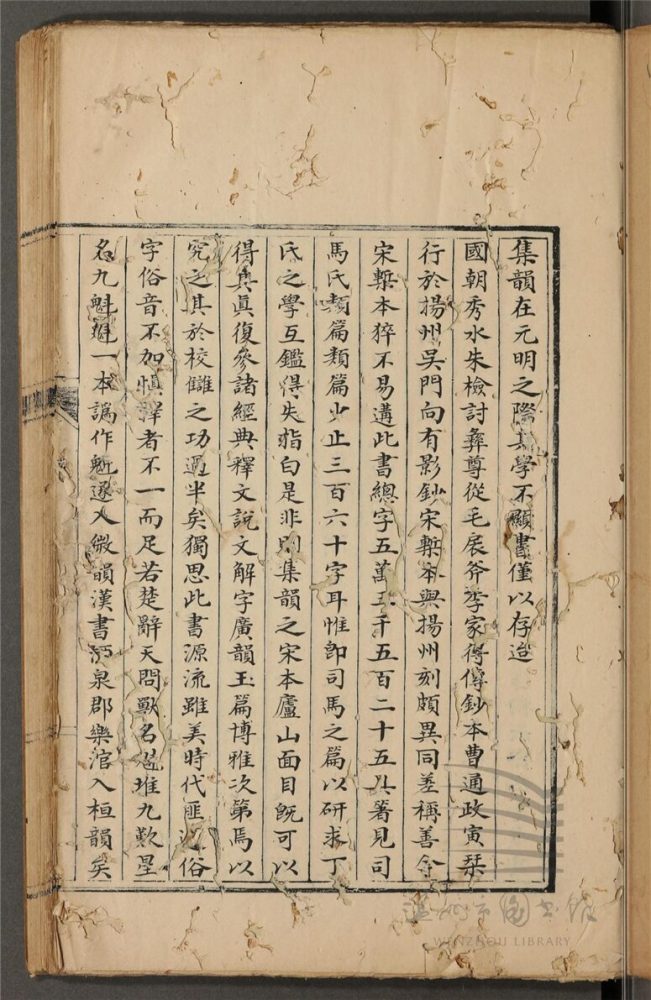 集韻在元明之際其學不顯書僅以存迨
國朝秀水朱檢討彝尊從毛扆斧季家得傳鈔本曹通政寅栞
行於揚州吳門向有影鈔宋槧本與揚州刻頗異同差稱善今
宋槧本猝不易遘此書總字五萬三千五百二十五其著見司
馬氏類篇類篇少止三百六十字耳惟卽司馬之篇以研求丁
氏之學互鑑得失指白是非則集韻之宋本廬山面目旣可以
得其眞復參諸經典釋文說文解字廣韻玉篇博雅次第焉以
究之其於校讎之功過半矣獨思此書源流雖美時代匪遐俗
字俗音不加愼擇者不一而足若楚辭天問獸名堆九歎星
名九鬿一本譌作魁遂入微韻漢書酒泉郡樂涫入桓韻矣
溫州市圖書館
WENZHOU LIBRARY